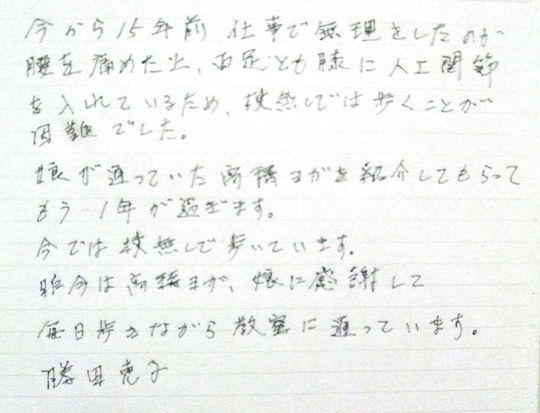 今から15年前 仕事で無理をしたのか
腰を痛めた上、両足とも膝に人工関節
を入れているため、杖無しでは歩くことが
困難でした。
娘が通っていた高橋ヨガを紹介してもらって
もう1年が過ぎます。
今では杖無しで歩いています。
昨今は高橋ヨガ、娘に感謝して
毎日歩きながら教室に通っています。
勝田恵子